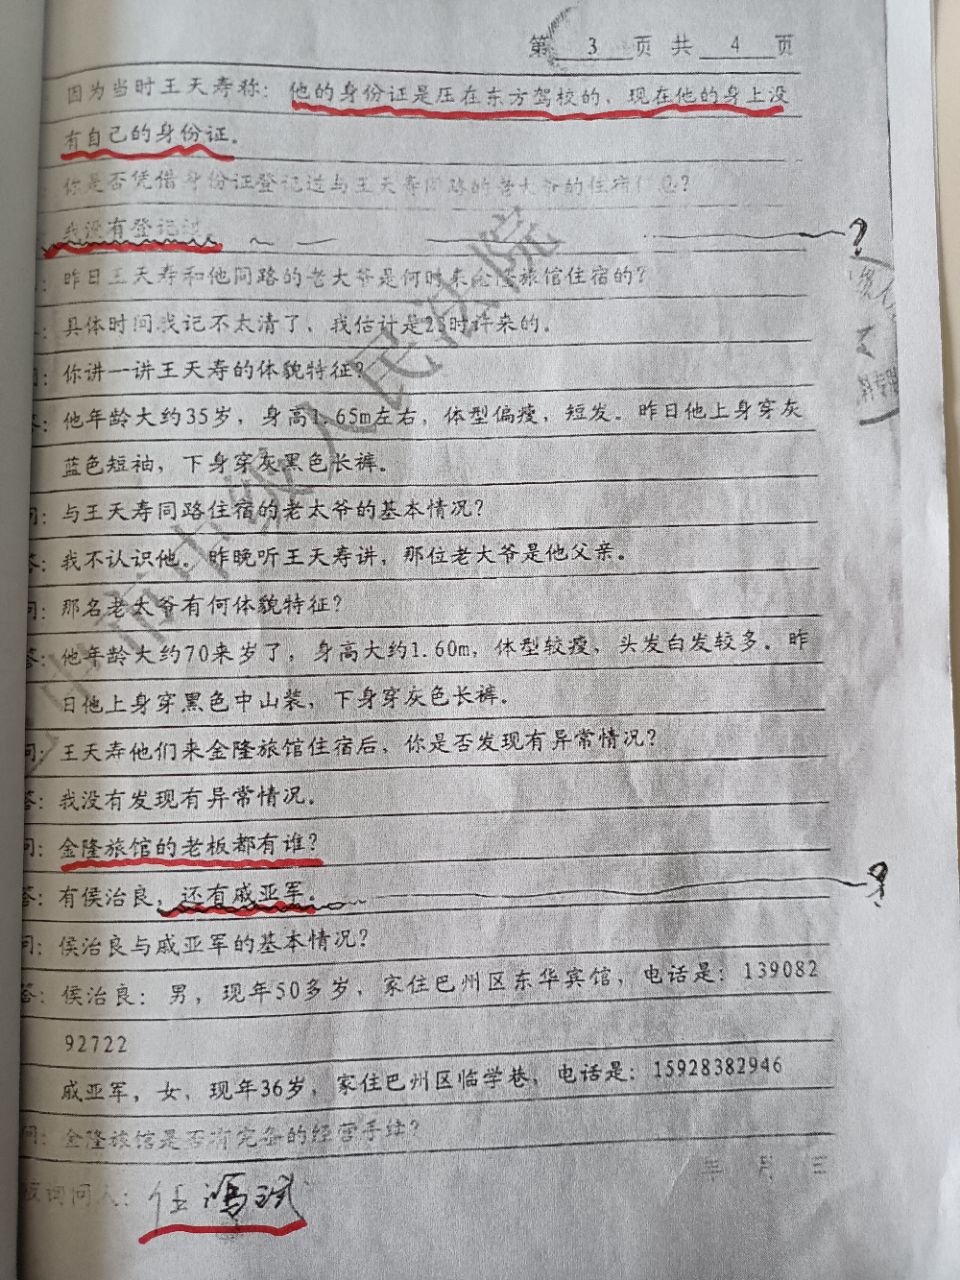 第 3 页 共 4 页
因为当时王天寿称：他的身份证是压在东方驾校的，现在他的身上没
有自己的身份证。
你是否凭借身份证登记过与王天寿同路的老大爷的住宿信息？
我没有登记过。
昨日王天寿和他同路的老大爷是何时来金隆旅馆住宿的？
具体时间我记不太清了，我估计是23时许来的。
问：你讲一讲王天寿的体貌特征？
答：他年龄大约35岁，身高1.65m左右，体型偏瘦，短发。昨日他上身穿灰
蓝色短袖，下身穿灰黑色长裤。
问：与王天寿同路住宿的老太爷的基本情况？
答：我不认识他。昨晚听王天寿讲，那位老大爷是他父亲。
问：那名老太爷有何体貌特征？
答：他年龄大约70来岁了，身高大约1.60m，体型较瘦，头发白发较多。昨
日他上身穿黑色中山装，下身穿灰色长裤。
问：王天寿他们来金隆旅馆住宿后，你是否发现有异常情况？
答：我没有发现有异常情况。
问：金隆旅馆的老板都有谁？
答：有侯治良，还有戚亚军。
问：侯治良与戚亚军的基本情况？
答：侯治良：男，现年50多岁，家住巴州区东华宾馆，电话是：139082
92722
戚亚军，女，现年36岁，家住巴州区临学巷，电话是：15928382946
问：金隆旅馆是否有完备的经营手续？
年 月 日
被询问人：任鸿斌
市中级人民法院